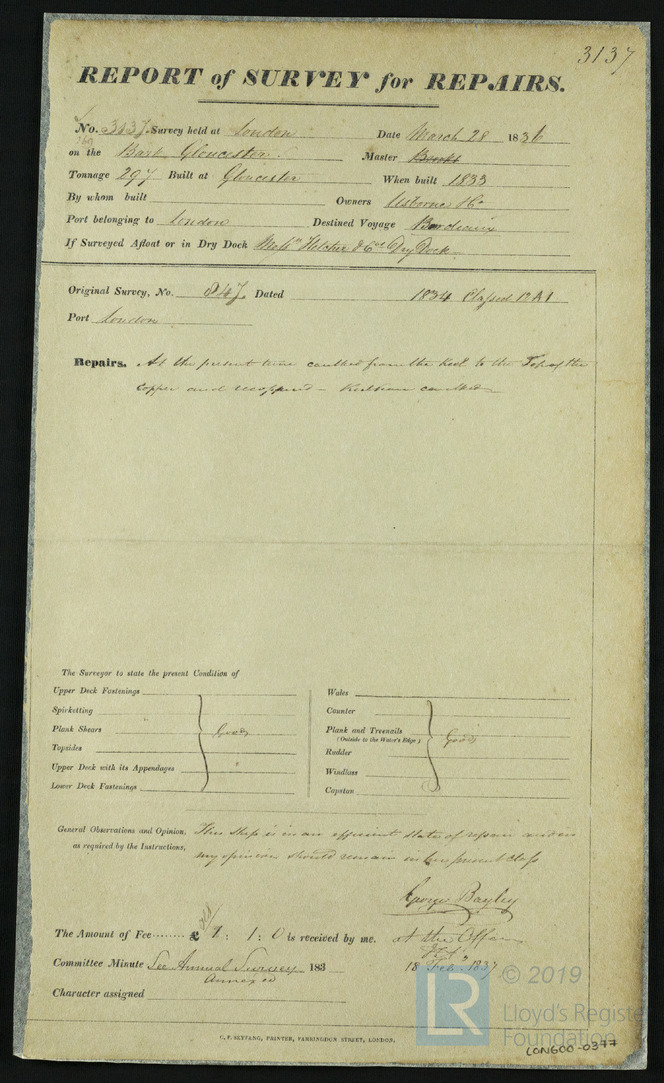 3137
REPORT of SURVEY for REPAIRS.
No. 3137. Survey held at London Date March 28 1836
on the Bark Gloucester. Master
Tonnage 297 Built at Gloucester When built 1833
By whom built Owners Usborne & Co
Port belonging to London Destined Voyage Bordeaux
If Surveyed Afloat or in Dry Dock Messrs Fletcher & Cos Dry Dock
Original Survey, No. 847. Dated 1834 Classed 12 A1
Port London
Repairs. At the present time caulked from the Keel to the Top of the
Copper and recoppered – Keelson caulked
The Surveyor to state the present Condition of
Upper Deck Fastenings
Spirketting
Plank Shears Good
Topsides
Upper Deck with its Appendages
Lower Deck Fastenings
Wales
Counter
Plank and Treenails Good
(Outside to the Water's Edge)
Rudder
Windlass
Capstan
General Observations and Opinion, This Ship is in an efficient state of repair and in
as required by the Instructions, my opinion should remain on her present Class
George Bayley
The Amount of Fee ........ £ 1 : 1 : 0 is received by me. at the Office
Committee Minute See Annual Survey 183 18 Feb. 1837
Annexed
Character assigned
C. F. SEYFANG, PRINTER, FARRINGDON STREET, LONDON.
© 2019
LR Lloyd's Register
Foundation
LON600-0377